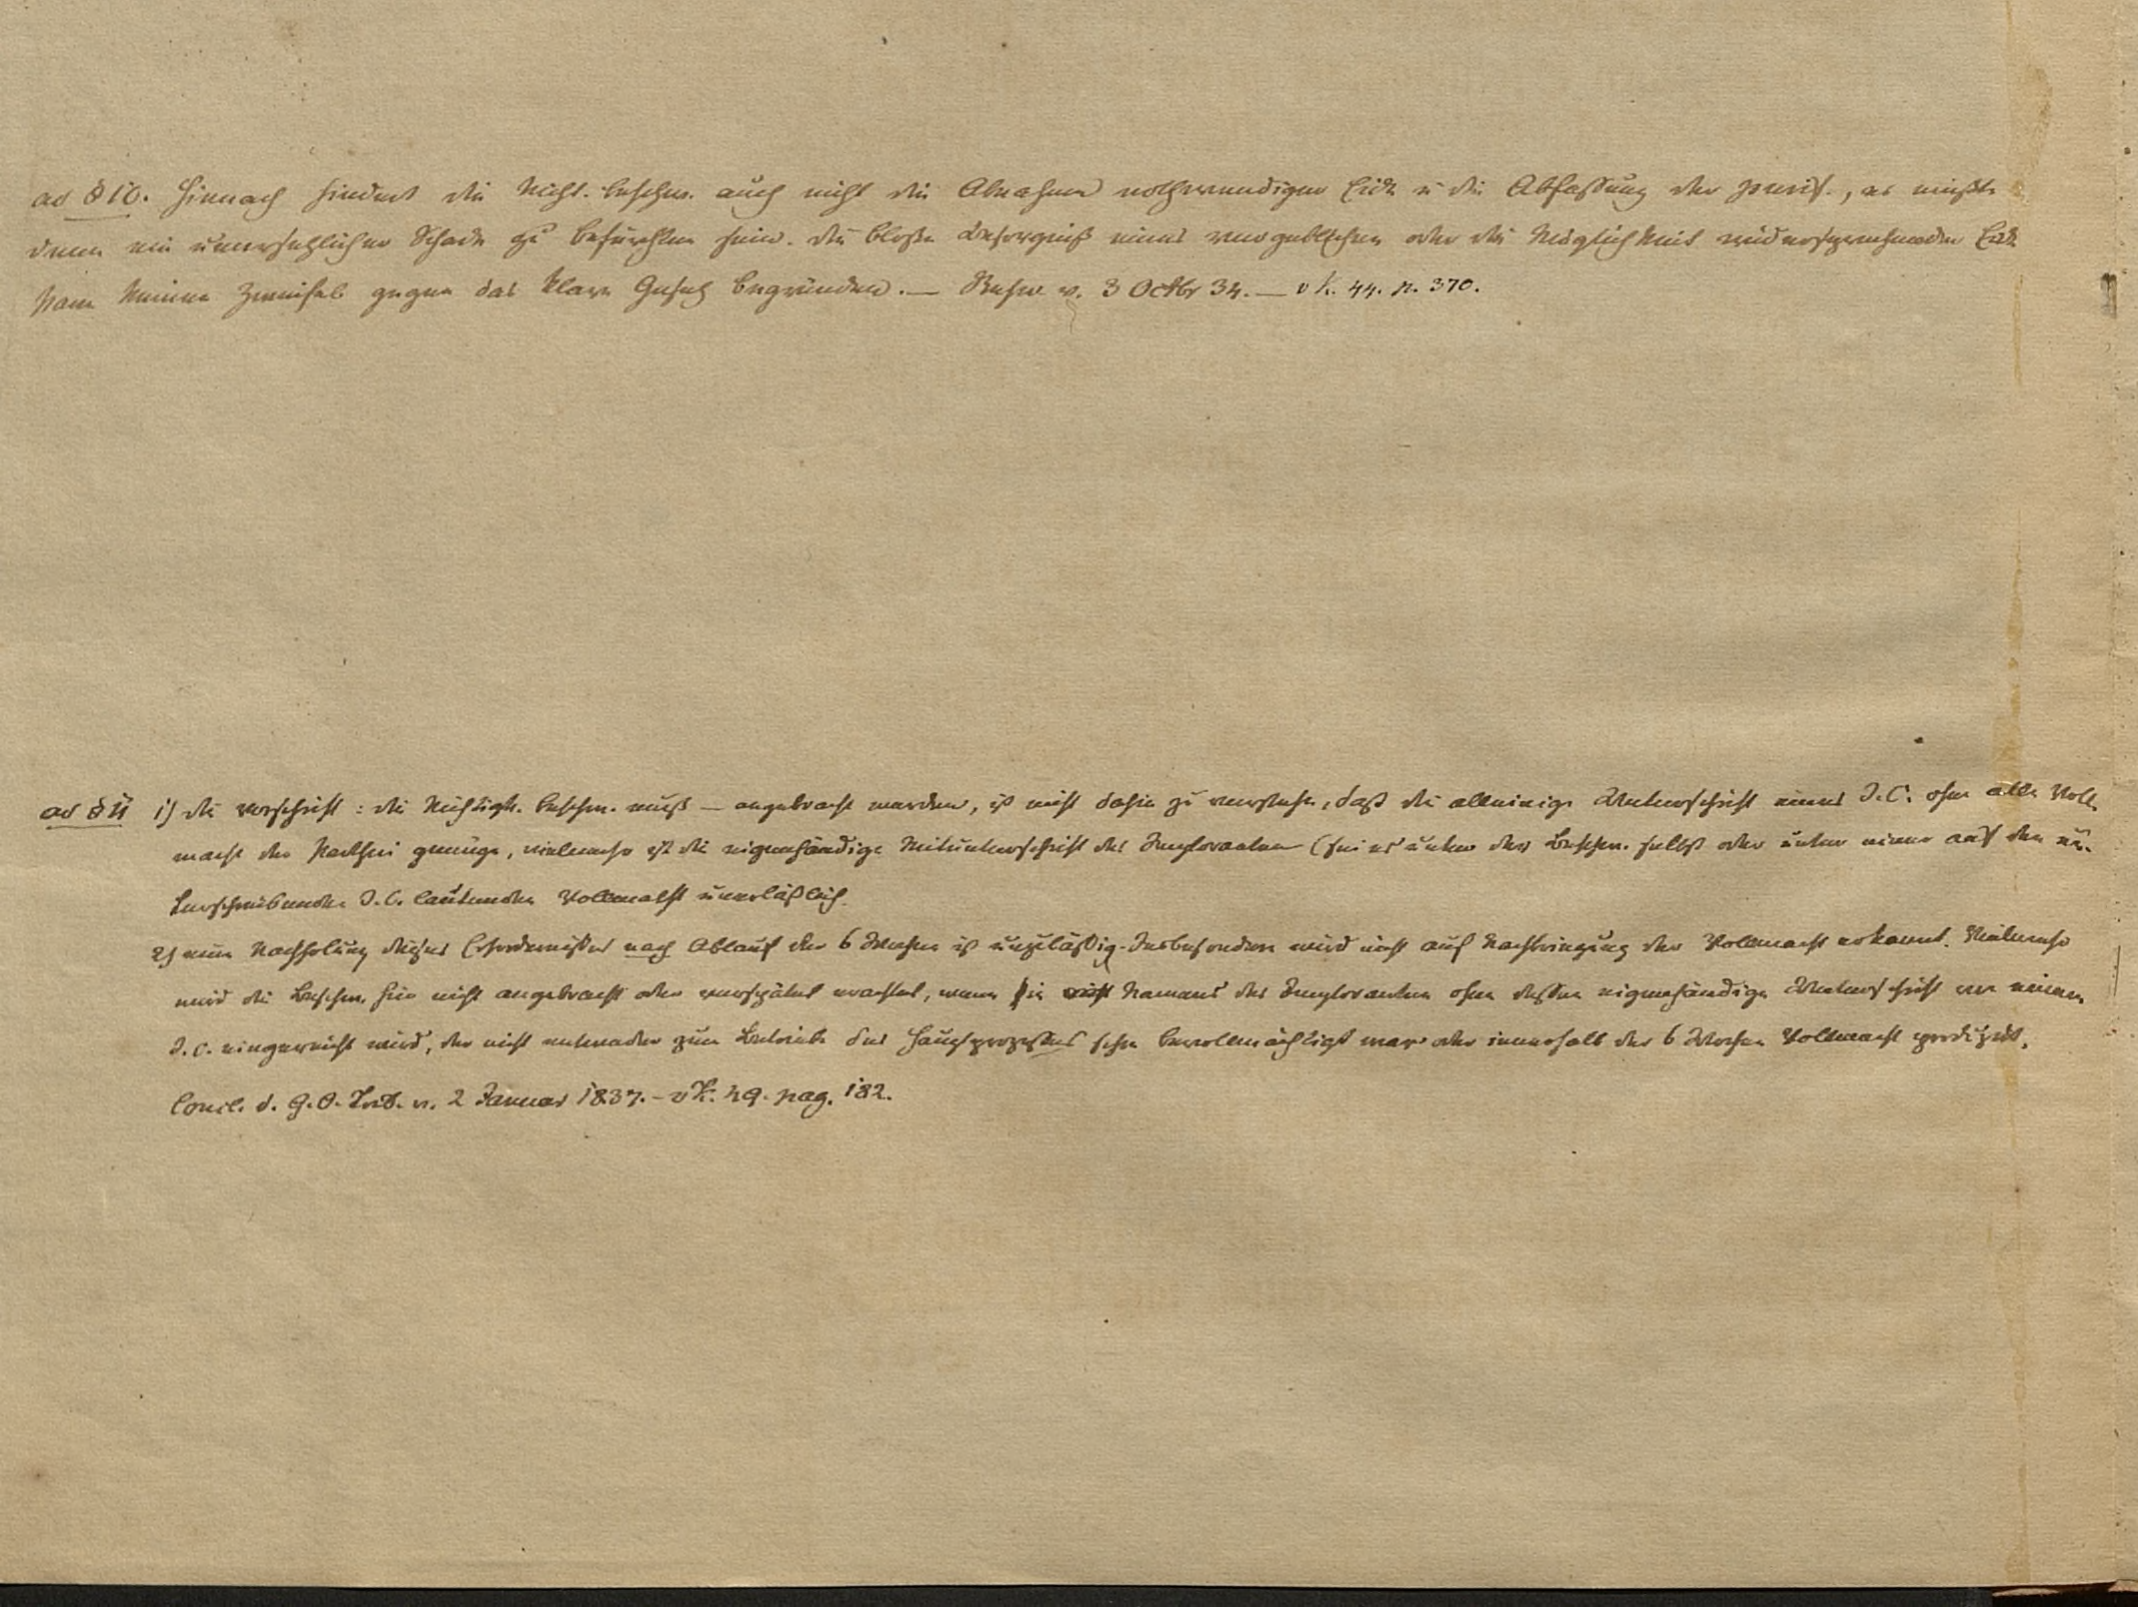 ad § 10. Hiernach hindert die Nicht. beschw. auch nicht die Abnahme nothwendiger Eide u die Abfassung der purif., es müßte
denn ein unersetzlicher Schade zu befürchten sein. Die bloße Besorgniß eines vergeblichen oder die Möglichkeit widersprechender Eide
kann keinen Zweifel gegen das klare Gesetz begründen. — Rescr v. 3 Octbr 34. — v K. 44. p. 370.
ad § 11 1) die Vorschrift: die Nichtigk. beschw. muß — angebracht werden, ist nicht dahin zu verstehen, daß die alleinige Unterschrift eines J. C. ohne alle Voll
macht der Parthei genüge, vielmehr ist die eigenhändige Mitunterschrift des Imploranten (sei es unter der Beschw. selbst oder unter einer auf den un-
terschreibenden J. C. lautenden Vollmacht unerläßlich.
2) eine Nachholung dieses Erfordernisses nach Ablauf der 6 Wochen ist unzuläßig. Insbesondere wird nicht auf Nachbringung der Vollmacht erkannt. Vielmehr
wird die Beschw. für nicht angebracht oder verspätet erachtet, wenn sie Namens des Imploranten ohne dessen eigenhändige Unterschrift von einem
J. C. eingereicht wird, der nicht entweder zum Betriebe des Hauptprozesses schon bevollmächtigt war oder innerhalb der 6 Wochen Vollmacht produzirt.
Concl. d. G. O. Trib. v. 2 Januar 1837. – v K. 49. pag. 182.